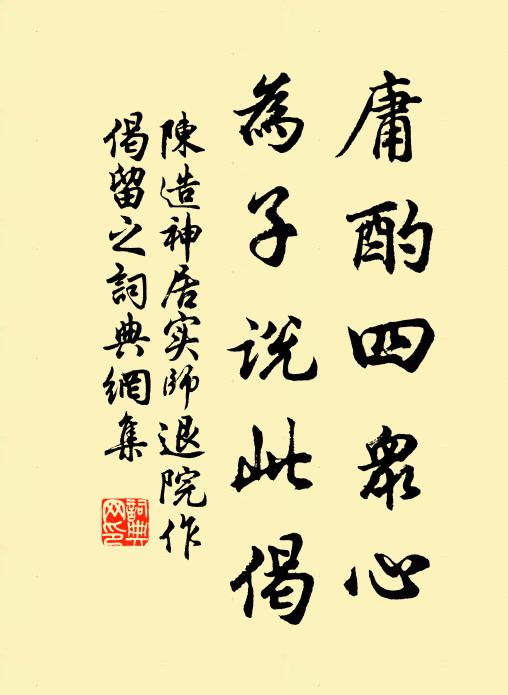 庸酌四衆心
為子説此偈
陳造神居实師退院作
偈留之詞典網集
詞典
网印